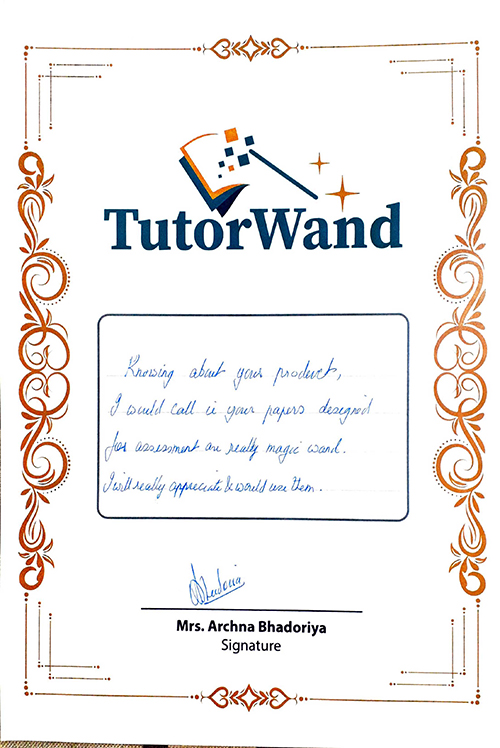 TutorWand
Knowing about your product,
I would call ie your papers designed
for assessment are really magic wand.
I will really appreciate & would use them.
Bhadoria
Mrs. Archna Bhadoriya
Signature